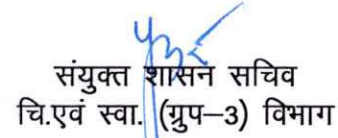 संयुक्त शासन सचिव
चि.एवं स्वा. (ग्रुप–3) विभाग